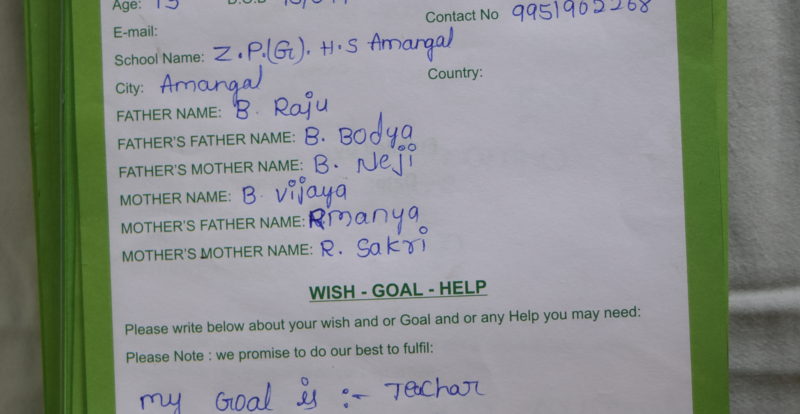 Age: 15
Contact No 9951902268
E-mail:
School Name: Z.P.(G). H.S Amangal
City: Amangal Country:
FATHER NAME: B. Raju
FATHER'S FATHER NAME: B. Bodya
FATHER'S MOTHER NAME: B. Neji
MOTHER NAME: B. Vijaya
MOTHER'S FATHER NAME: Rmanya
MOTHER'S MOTHER NAME: R. Sakri
WISH - GOAL - HELP
Please write below about your wish and or Goal and or any Help you may need:
Please Note : we promise to do our best to fulfil:
my Goal is :- Teachar